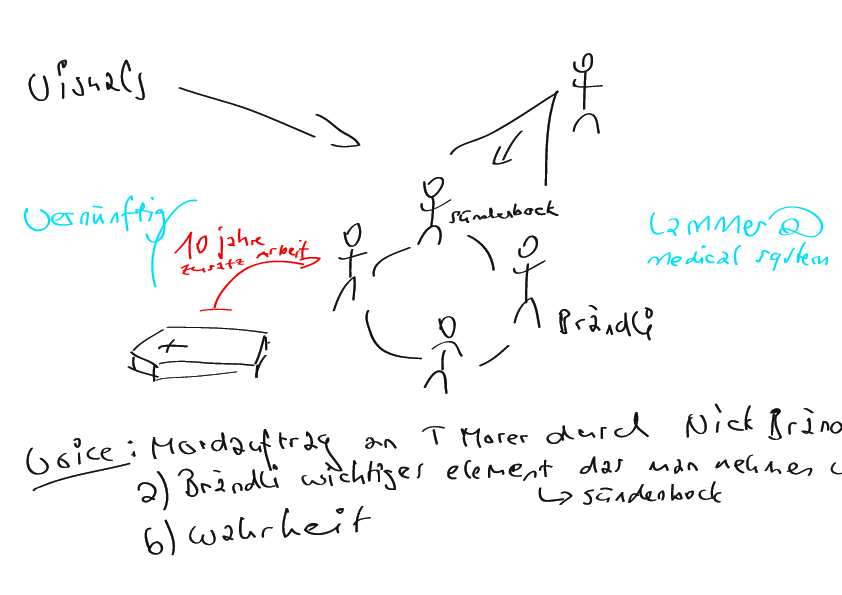 Visuals
Sündenbock
Vernünftig
10 Jahre
zusatz Arbeit
Lammer @
medical system
Brändli
Voice: Mordauftrag an T Morer durch Nick Bränd
a) Brändli wichtiges element das man nehmen
↳ Sündenbock
b) Wahrheit